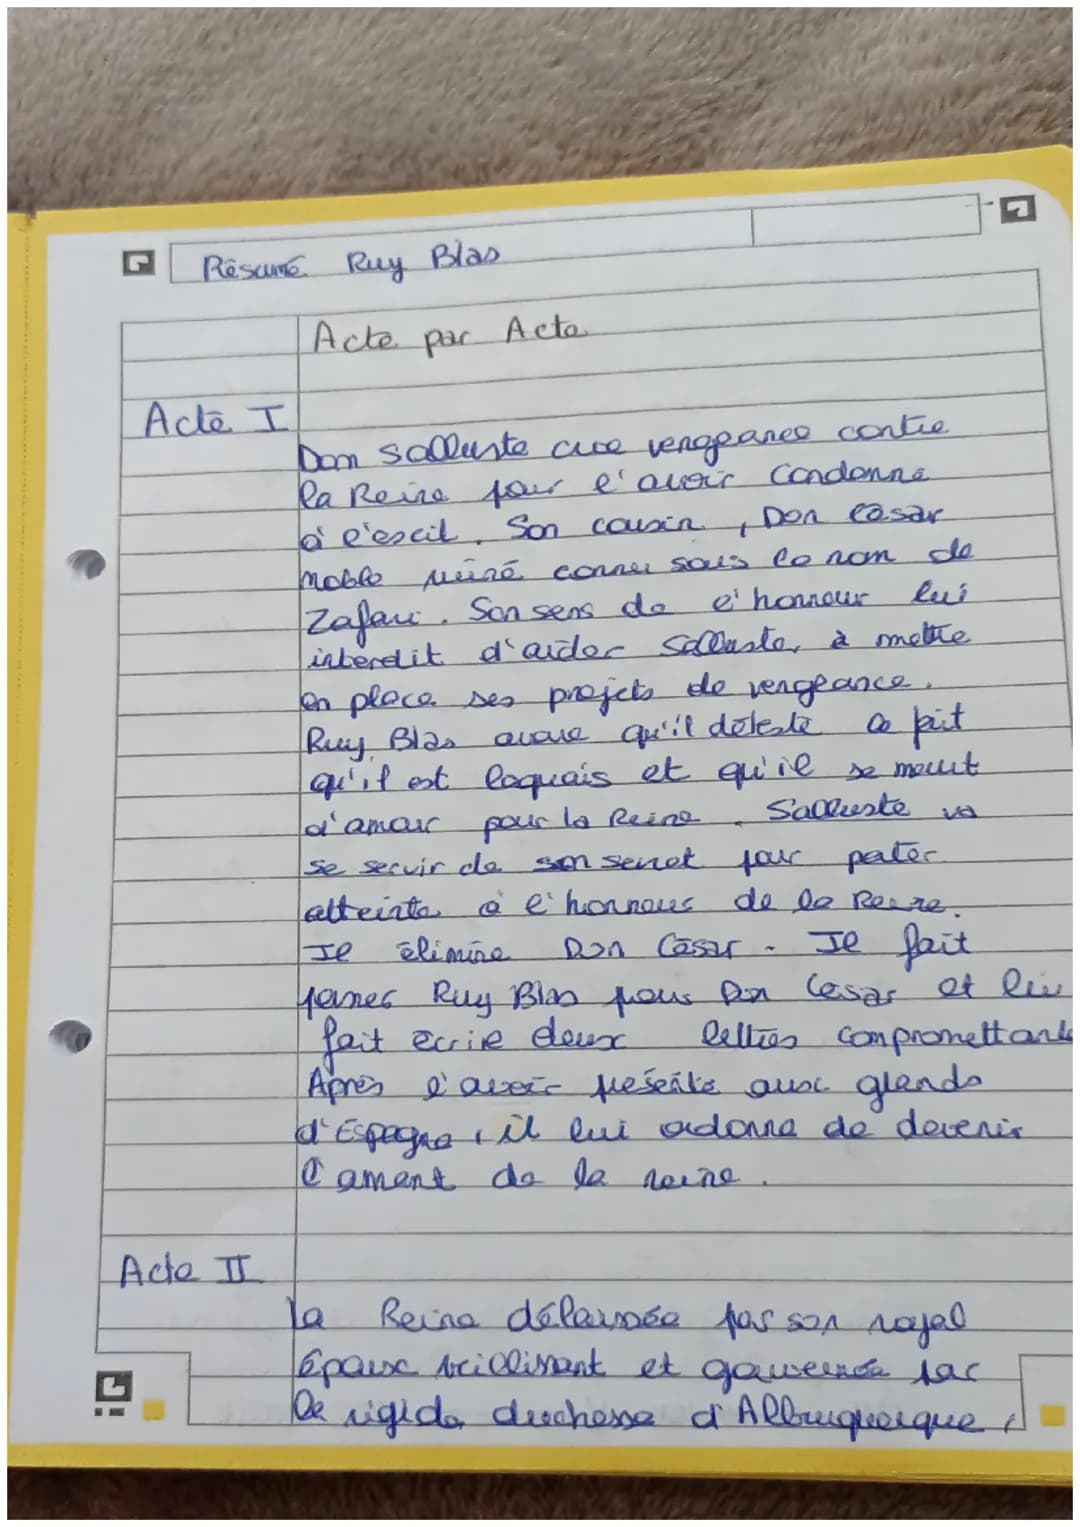 Résumé Ruy Blas
Acte par Acte
Acte I
Don Salluste crie vengeance contre
la Reine pour l'avoir condanne
à l'exil. Son cousin, Don César
noble ruiné connu sous le nom de
Zafari. Son sens de l'honneur lui
interdit d'aider Salluste, à mettre
en place ses projets de vengeance.
Ruy Blas avoue qu'il déteste le fait
qu'il est laquais et qu'il se meurt
d'amour pour la Reine. Salluste va
se servir de son secret pour porter
atteinte à l'honneur de la Reine.
Il élimine Don César. Il fait
passer Ruy Blas pour Don Cesar et lui
fait écrire deux lettres compromettante
Après l'avoir présenté aux glands
d'Espagne, il lui ordonne de devenir
l'ament de la reine.
Acte II
la Reine délaissée par son royal
Epoux vieillissant et gouvernée par
la rigide duchesse d'Albuquerque,